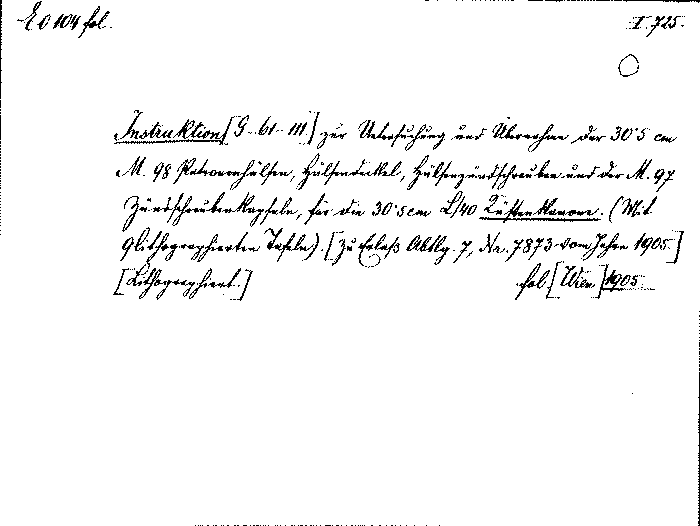 E o 104 fol.
I. 725.
Instruktion [G-61-III] zur Untersuchung und Übernahme der 30·5 cm
M. 98 Patronenhülsen, Hülsendeckel, Hülsenzündschrauben und der M. 97
Zündschraubenkapseln, für die 30·5 cm L/40 Küstenkanone. (Mit
9 lithographierten Tafeln). [Zu Erlaß Abtlg. 7, Nr. 7873 vom Jahre 1905.]
[Lithographiert.]
fol. [Wien] 1905.